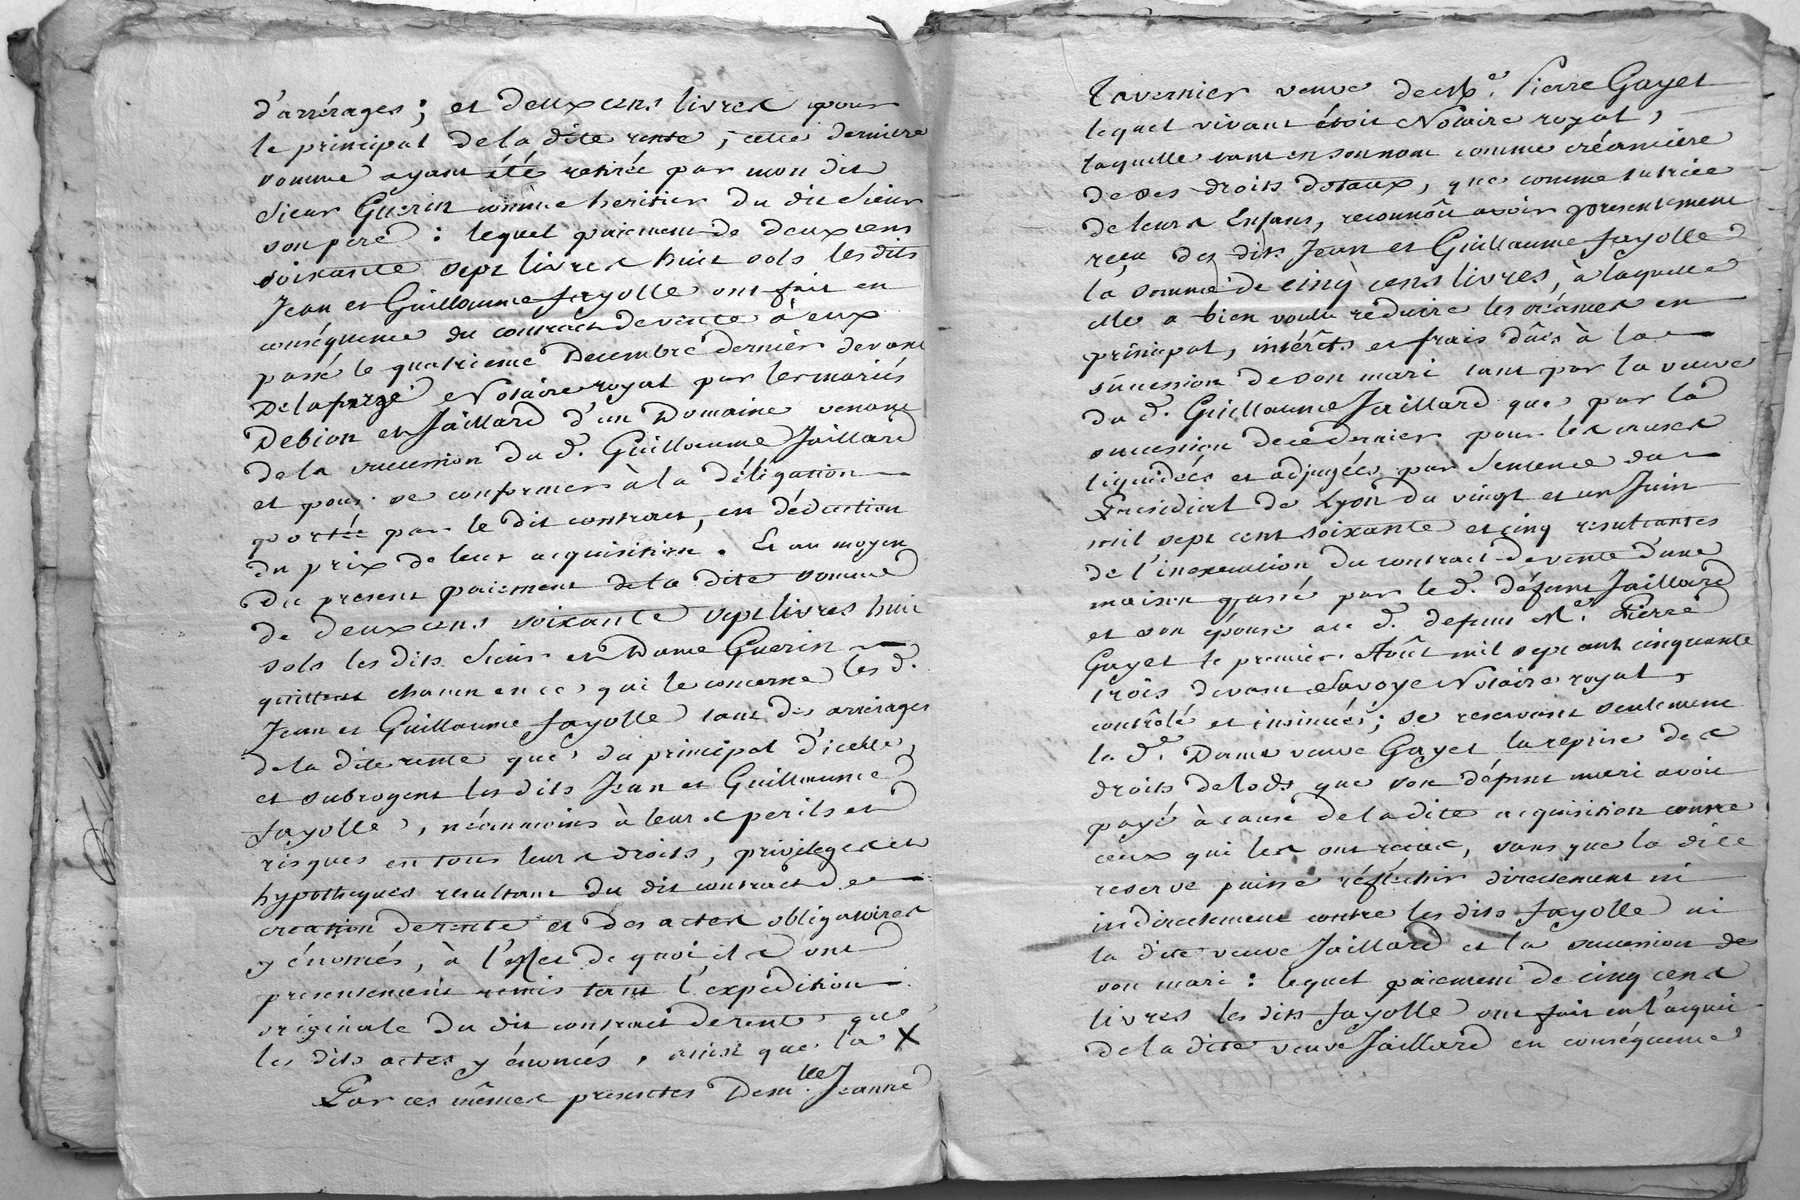 d'arrérages; et deux cens livres pour
le principal de la dite rente, cette derniere
somme ayant été retirée par mon dit
Sieur Guerin comme heritier du dit Sieur
son pere : lequel paiement de deux cens
soixante sept livres huit sols les dits
Jean et Guillaume fayolle ont fait en
conséquence du contract de vente à eux
passé le quatrieme Decembre dernier devant
Delaforge Notaire royal par les mariés
Debion et Jaillard d'un Domaine venant
de la succession du d. Guillaume Jaillard
et pour se conformer à la déligation
portée par le dit contract, en déduction
du prix de leur acquisition. Et au moyen
du present paiement de la dite somme
de deux cens soixante sept livres huit
sols les dits Sieur et Dame Guerin
quittent chacun en ce qui le concerne les d.
Jean et Guillaume fayolle tant des arrerages
de la dite rente que du principal d'icelle,
et subrogent les dits Jean et Guillaume
fayolle, néanmoins à leurs perils et
risques en tous leurs droits, privileges et
hypotheques resultant du dit contract de
creation de rente et des actes obligatoires
y énoncés, à l'effet de quoi ils ont
presentement remis tant l'expedition
originale du dit contract de rente que
les dits actes y énoncés, ainsi que la X
Par ces mêmes presentes Dem.lle Jeanne
Tavernier veuve de M.e Pierre Gayet
lequel vivant étoit Notaire royal,
laquelle tant en son nom comme créanciere
de ses droits dotaux, que comme tutrice
de leurs Enfans, reconnôit avoir presentement
reçu des dits Jean et Guillaume fayolle
la somme de cinq cens livres, à laquelle
elle a bien voulu réduire les créances en
principal, intérêts et frais dûës à la
succession de son mari tant par la veuve
du d. Guillaume Jaillard que par la
succession de ce dernier pour les causes
liquidées et adjugées par Sentence du
Présidial de Lyon du vingt et un Juin
mil sept cent soixante et cinq resultantes
de l'inexecution du contract de vente d'une
maison passé par le d. défunt Jaillard
et son épouse au d. defunt M.e Pierre
Gayet le premier Août mil sept cent cinquante
trois devant Savoye Notaire royal,
contrôlé et insinué; se reservant seulement
la d.e Dame veuve Gayet la reprise des
droits de lods que son défunt mari avoit
payé à cause de la dite acquisition contre
ceux qui les ont reçus, sans que la dite
reserve puisse réflechir directement ni
indirectement contre les dits fayolle ni
la dite veuve Jaillard et la succession de
son mari : lequel paiement de cinq cens
livres les dits fayolle ont fait en l'acquit
de la dite veuve Jaillard en conséquence